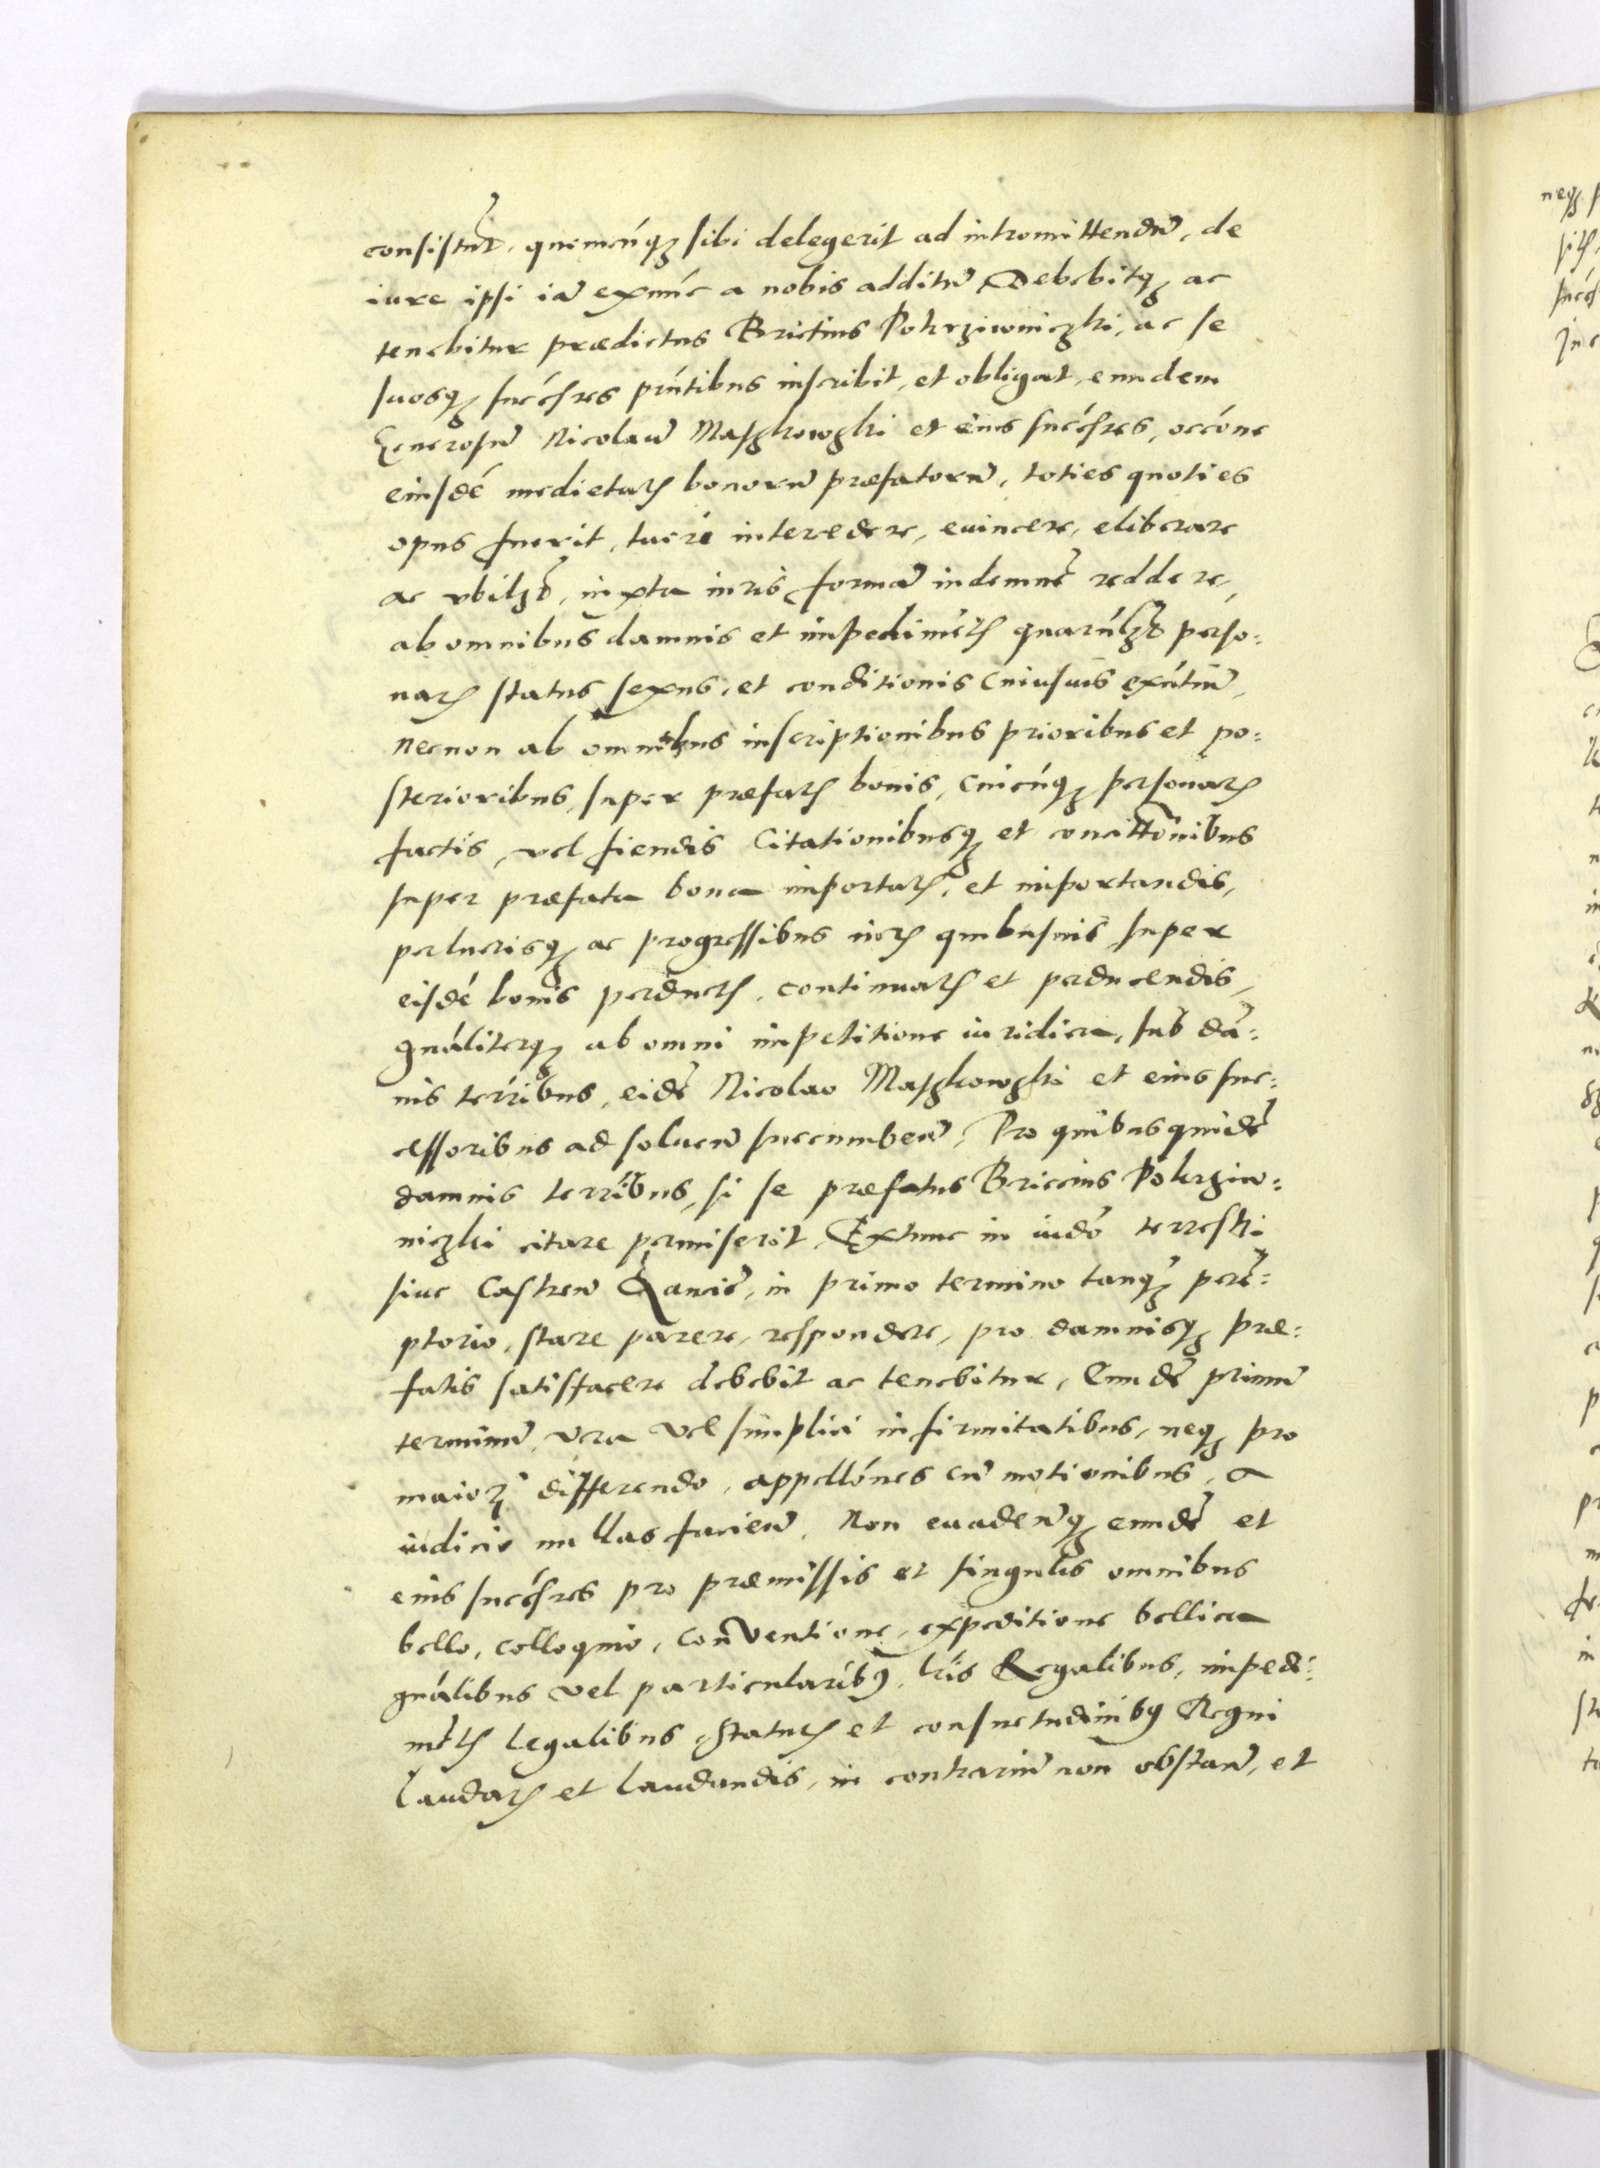 consistent, quemcúq sibi delegerit ad intromittendu, de
iure ipsi ia exnúc a nobis additu, Debebitq ac
tenebitur prædictus Brictius Pokrziwniczki, ac se
suosq succéssres prńtibus inscribit, et obligat, eundem
Generosu Nicolau Maszkowski et eius succéssres, occóne
eiusdé medietatis bonoru præfatoru, toties quoties
opus fuerit, tueri intercedere, euincere, eliberare
ac vbilzt, iuxta iuris forma indemne reddere,
ab omnibus damnis et impedimétis quarúlzt perso:
naru status sexus, et conditionis cuiusuis exńtiu,
necnon ab omnibus inscriptionibus prioribus et po:
sterioribus, super præfatis bonis, cuicúq personaru
factis, vel fiendis Citationibusq et concittónibus
super præfata bona importatis, et importandis,
perlucrisq ac progressibus iuris quibusuis super
eisdé bonis perductis, continuatis et perducendis,
gnáliterq ab omni impetitione iuridica, sub dá:
nis térribus, eide Nicolao Maszkowski et eius suc:
cessoribus ad soluen succumben, Pro quibus quide
damnis terríbus, si se præfatus Briccius Pokrziw:
niczki citare permiserit, Extunc in iudo terrestri
siue Castren Rancie, in primo termino tanq pere:
ptorio, stare parere, respondere, pro damnisq præ:
fatis satisfacere debebit ac tenebitur, Eunde primu
terminu, vera vel simplici infirmitatibus, neq pro
maiori differendo, appellónes cu motionibus, a
iudicio nullas facien, Non euadenq eunde et
eius succéssres pro præmissis et singulis omnibus
bello, colloquio, conuentione, expeditione bellica
gnálibus vel particularib9, lris Regalibus, impedi:
mtis legalibus, statutis et consuetudinib9 Regni
laudatis et laudandis, in contrariu non obstan, et